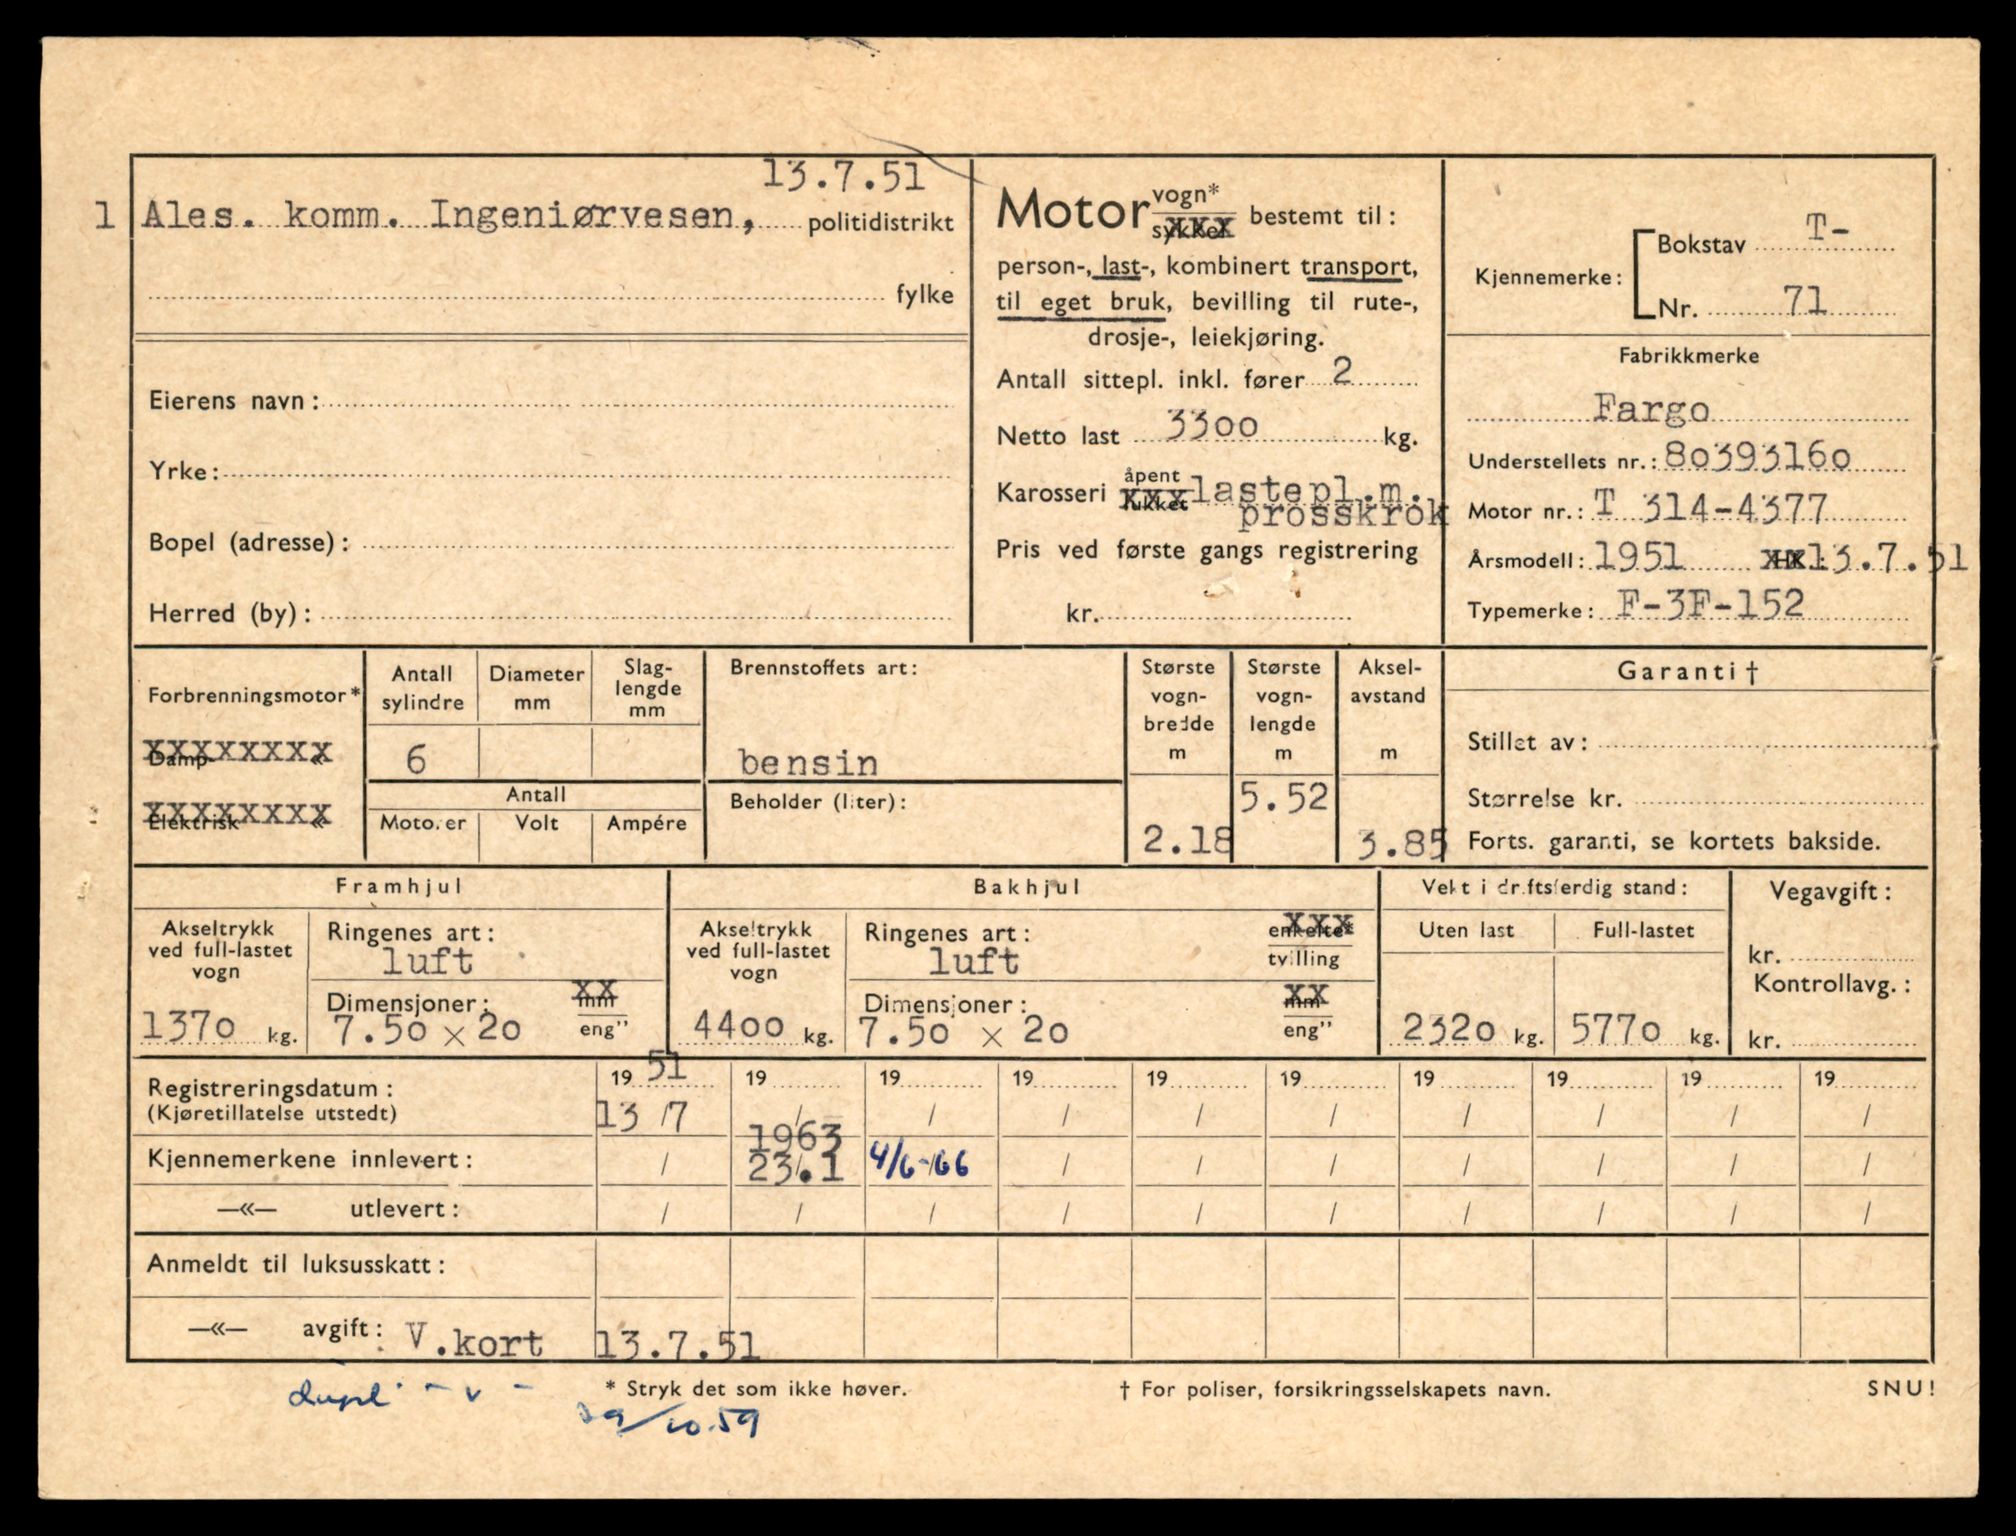 13.7.51
1 Ales. komm. Ingeniørvesen, politidistrikt
fylke
Eierens navn:
Yrke:
Bopel (adresse):
Herred (by):
Motor vogn* sykkel bestemt til:
person-, last-, kombinert transport,
til eget bruk, bevilling til rute-,
drosje-, leiekjøring.
Antall sittepl. inkl. fører 2
Netto last 3300 kg.
Karosseri åpent lukket lastepl.m.
prosskrok
Pris ved første gangs registrering
kr.
Kjennemerke: Bokstav T-
Nr. 71
Fabrikkmerke
Fargo
Understellets nr.: 80393160
Motor nr.: T 314-4377
Årsmodell: 1951 13.7.51
Typemerke: F-3F-152
Forbrenningsmotor*
XXXXXXXX
Damp- «
XXXXXXXX
Elektrisk «
Antall sylindre
6
Diameter mm
Slag-
lengde
mm
Antall
Motorer Volt Ampére
Brennstoffets art:
bensin
Beholder (liter):
Største
vogn-
bredde
m
2.18
Største
vogn-
lengde
m
5.52
Aksel-
avstand
m
3.85
Garanti †
Stillet av:
Størrelse kr.
Forts. garanti, se kortets bakside.
Framhjul
Akseltrykk
ved full-lastet
vogn
1370 kg.
Ringenes art:
luft
Dimensjoner: mm
7.50 x 20 eng"
Bakhjul
Akseltrykk
ved full-lastet
vogn
4400 kg.
Ringenes art: enkelte*
luft tvilling
Dimensjoner: mm
7.50 x 20 eng"
Vekt i driftsferdig stand:
Uten last Full-lastet
2320 kg. 5770 kg.
Vegavgift:
kr.
Kontrollavg.:
kr.
Registreringsdatum: 19 51 19 19 19 19 19 19 19 19 19
(Kjøretillatelse utstedt) 13 / 7 / / / / / / / / /
1963
Kjennemerkene innlevert: / 23.1 4/6-66 / / / / / / /
—«— utlevert: / / / / / / / / / /
Anmeldt til luksusskatt:
—«— avgift: V.kort 13.7.51
dupl - v -
* Stryk det som ikke høver.
† For poliser, forsikringsselskapets navn.
SNU!